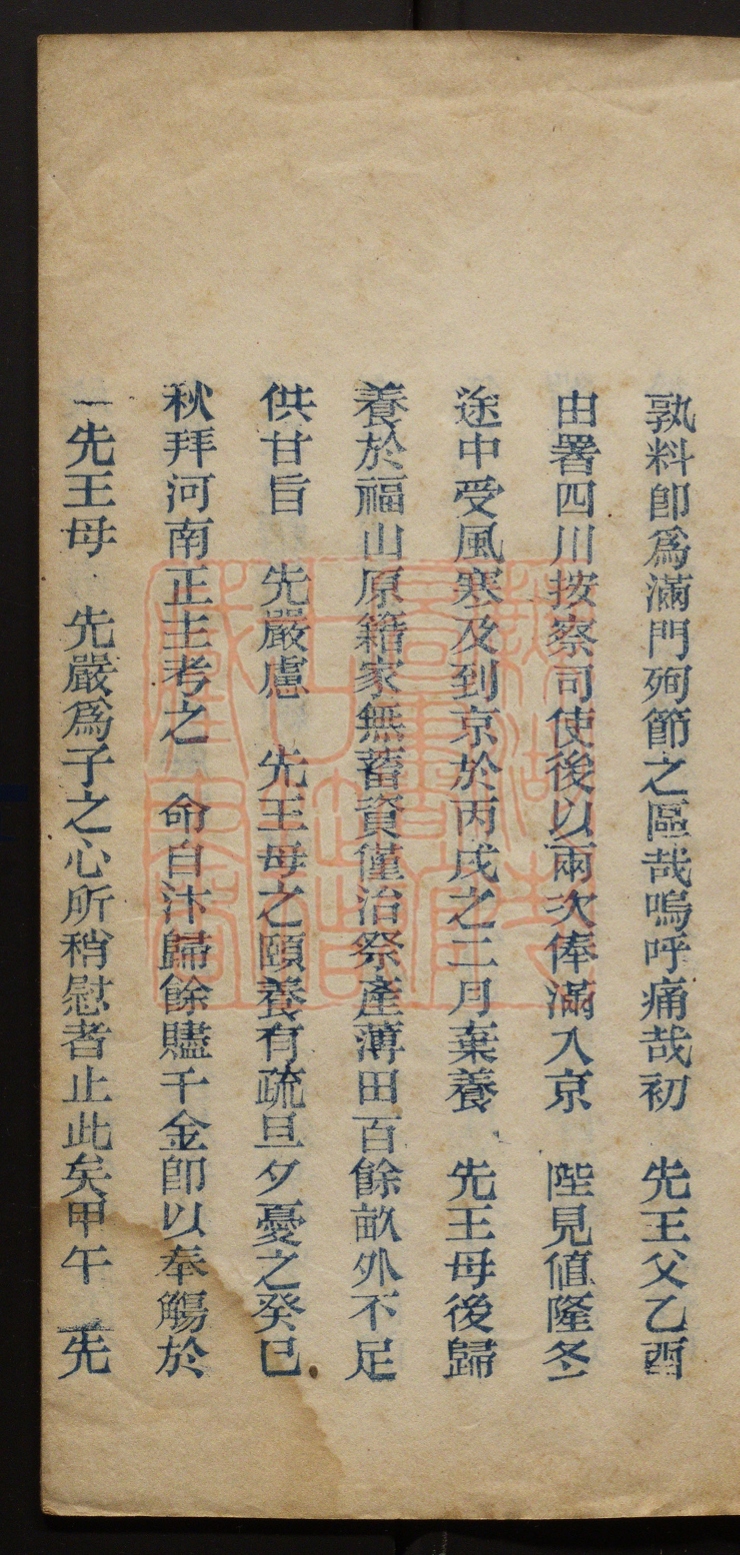 孰料卽爲滿門殉節之區哉嗚呼痛哉初　先王父乙酉
由署四川按察司使後以兩次俸滿入京　陛見値隆冬
途中受風寒及到京於丙戌之二月棄養　先王母後歸
養於福山原籍家無蓄資僅治祭產薄田百餘畝外不足
供甘旨　先嚴慮　先王母之頤養有疏旦夕憂之癸巳
秋拜河南正主考之　命自汴歸餘贐千金卽以奉觴於
先王母　先嚴爲子之心所稍慰者止此矣甲午　先